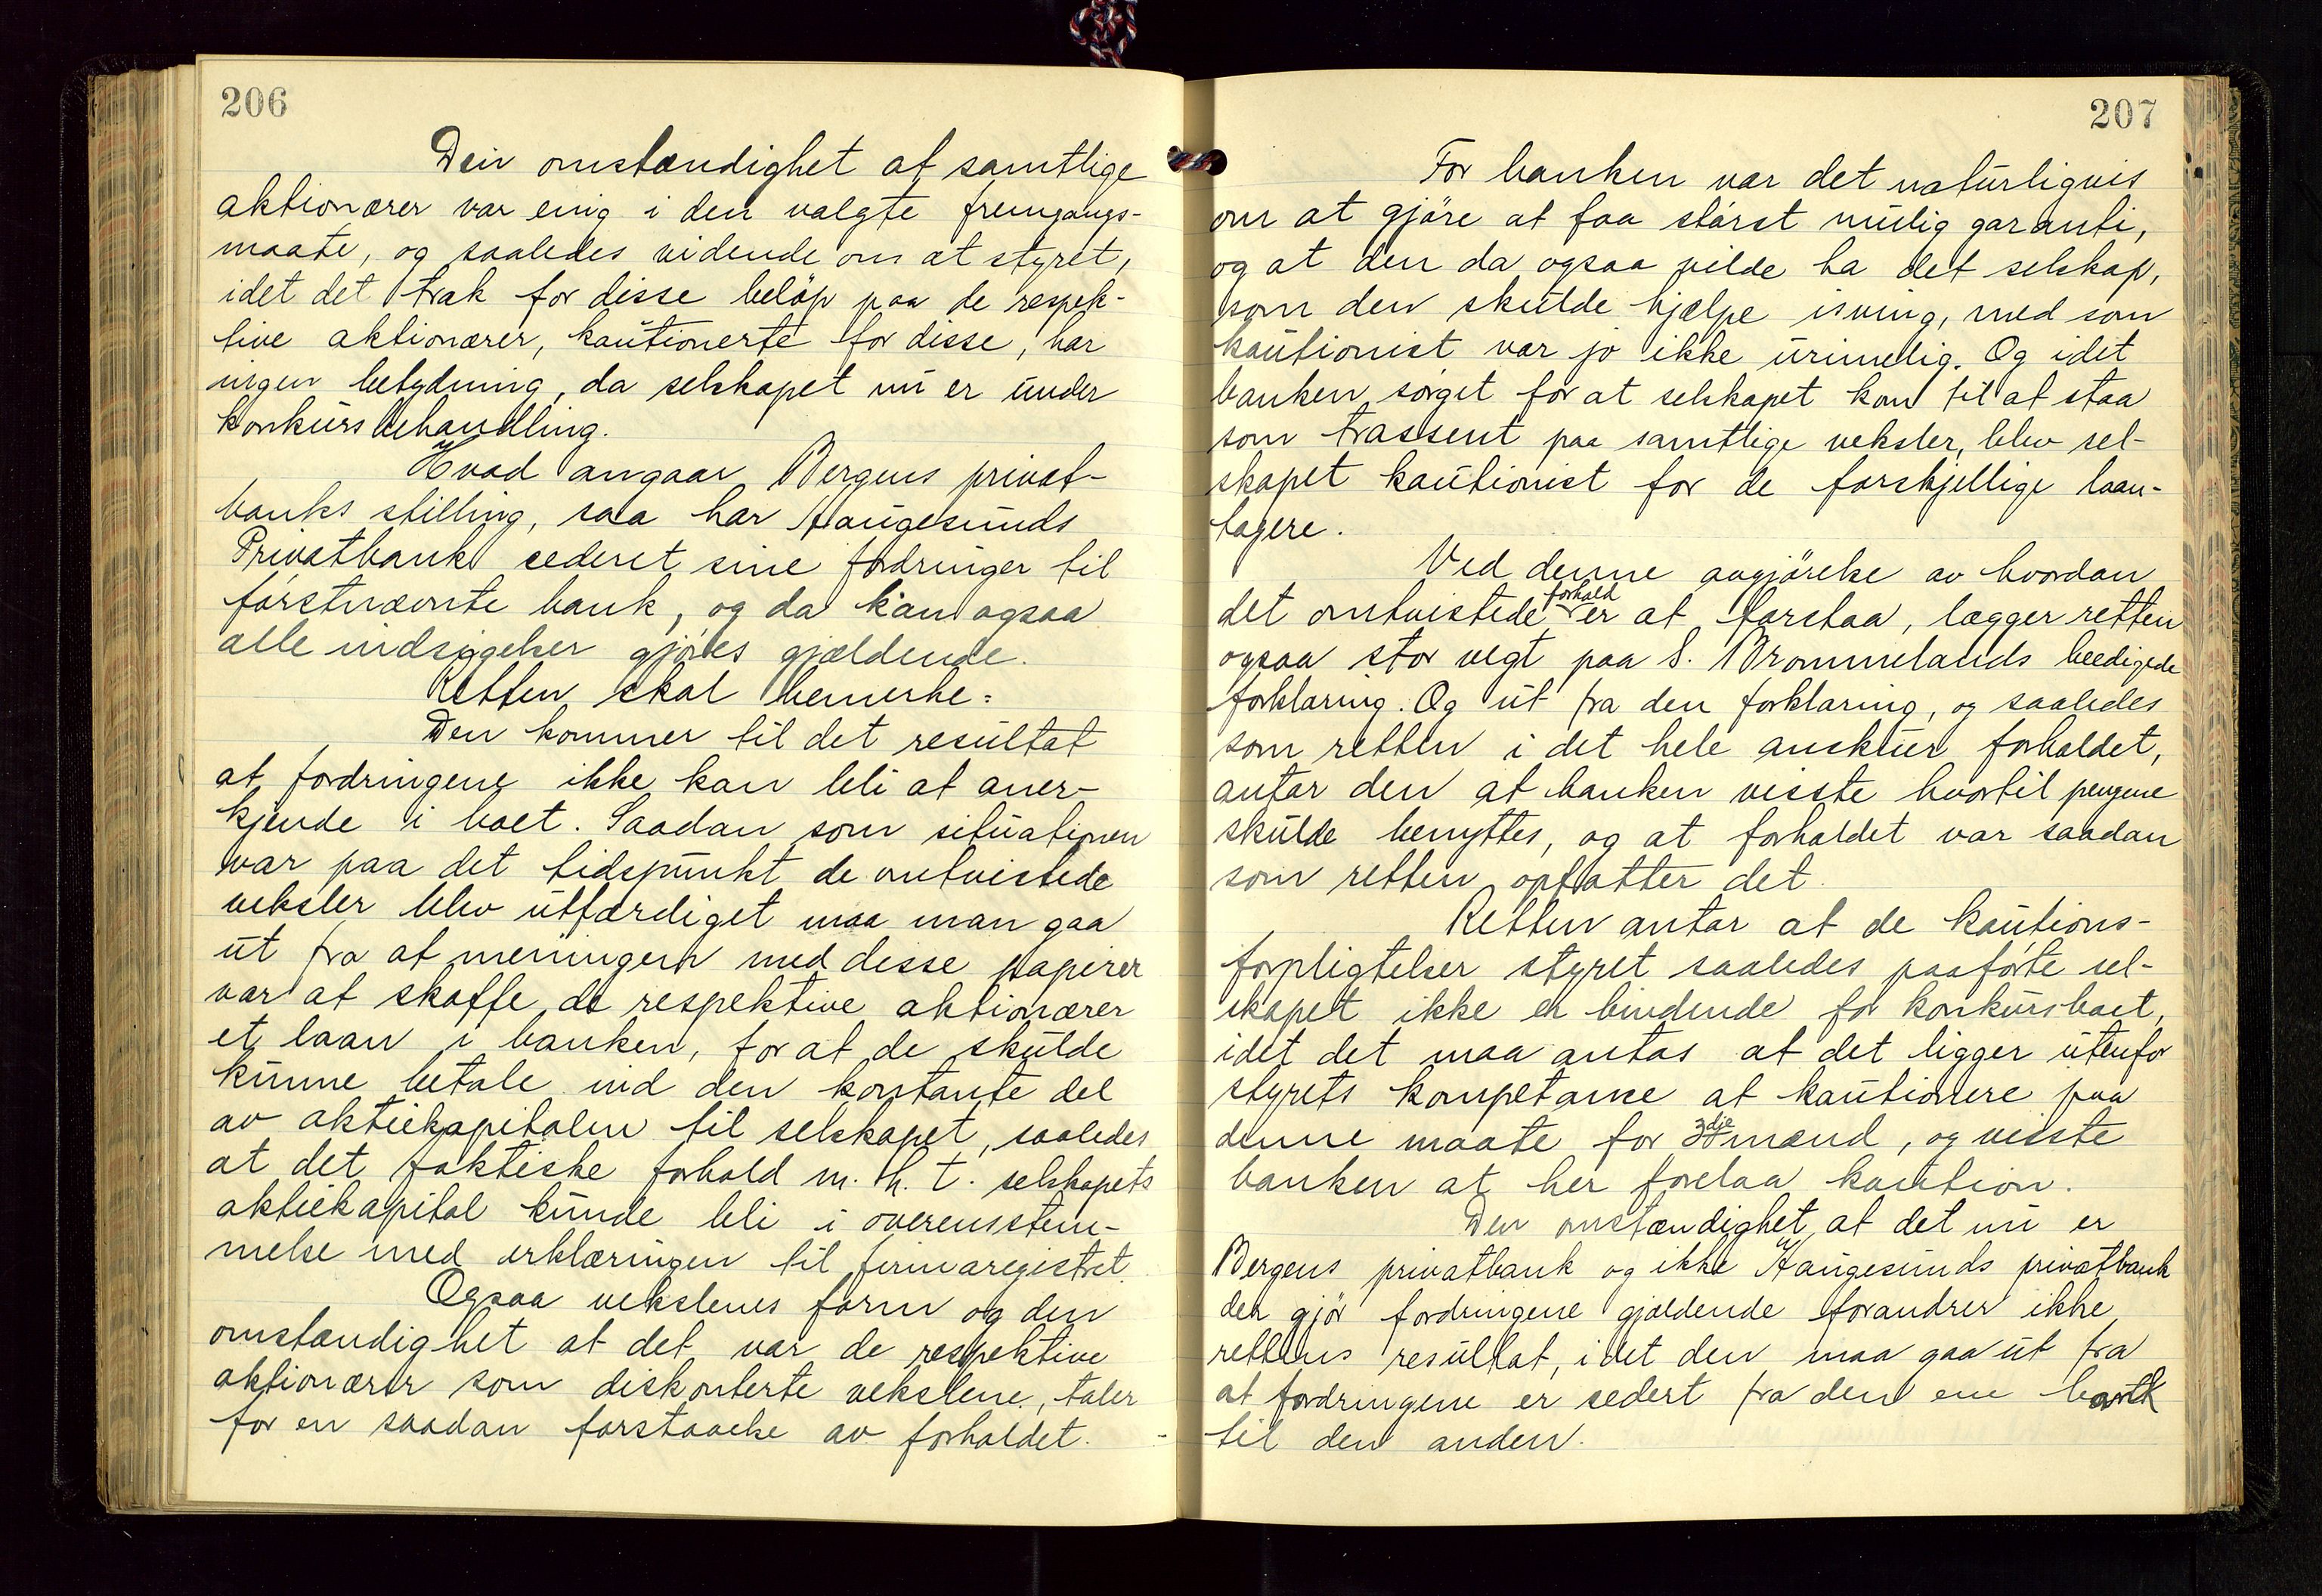 206
Den omstændighet at samtlige
aktionærer var enig i den valgte fremgangs-
maate, og saaledes vidende om at styret,
idet det trak for disse beløp paa de respek-
tive aktionærer, kautionerte for disse, har
ingen betydning, da selskapet nu er under
konkursbehandling.
Hvad angaar Bergens privat-
banks stilling, saa har Haugesunds
Privatbank cederet sine fordringer til
førstnævnte bank, og da kan ogsaa
alle indsigelser gjøres gjældende.
Retten skal bemerke:
Den kommer til det resultat
at fordringene ikke kan bli at aner-
kjende i boet. Saadan som situationen
var paa det tidspunkt de omtvistede
veksler blev utfærdiget maa man gaa
ut fra at meningen med disse papirer
var at skaffe de respektive aktionærer
et laan i banken, for at de skulde
kunne betale ind den kontante del
av aktiekapitalen til selskapet, saaledes
at det faktiske forhold m. h. t. selskapets
aktiekapital kunde bli i overensstem-
melse med erklæringen til firmaregistret.
Ogsaa vekslenes form og den
omstændighet at det var de respektive
aktionærer som diskonterte vekslene, taler
for en saadan forstaaelse av forholdet.
207
For banken var det naturligvis
om at gjøre at faa størst mulig garanti,
og at den da ogsaa vilde ha det selskap,
som den skulde hjælpe isving, med som
kautionist var jo ikke urimelig. Og idet
banken sørget for at selskapet kom til at staa
som trassent paa samtlige veksler, blev sel-
skapet kautionist for de forskjellige laan-
tagere.
Ved denne avgjørelse av hvordan
det omtvistede forhold er at forstaa, lægger retten
ogsaa stor vegt paa S. Brommelands beedigede
forklaring. Og ut fra den forklaring, og saaledes
som retten i det hele anskuer forholdet,
antar den at banken visste hvortil pengene
skulde benyttes, og at forholdet var saadan
som retten opfatter det.
Retten antar at de kautions-
forpligtelser styret saaledes paaførte sel-
skapet ikke er bindende for konkursboet,
idet det maa antas at det ligger utenfor
styrets kompetanse at kautionere paa
denne maate for 3dje mænd, og visste
banken at her forelaa kaution.
Den omstændighet at det nu er
Bergens privatbank og ikke Haugesunds privatbank
der gjør fordringene gjældende forandrer ikke
rettens resultat, idet den maa gaa ut fra
at fordringene er cedert fra den ene bank
til den anden.